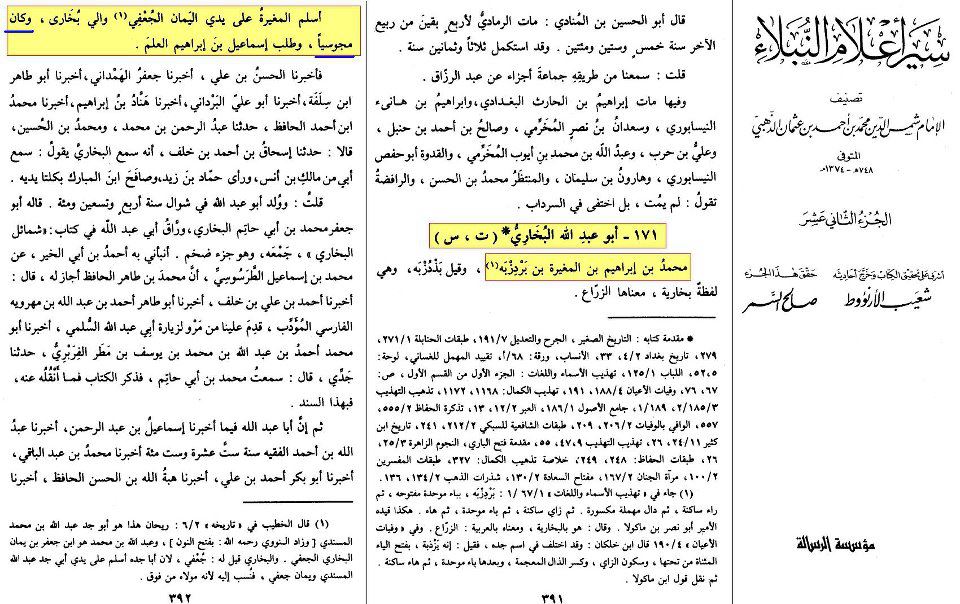 سير أعلام النبلاء
تصنيف
الإمام شمس الدين محمد بن أحمد بن عثمان الذهبي
المتوفى
٧٤٨هـ - ١٣٧٤م
الجزء الثاني عشر
أشرف على تحقيق الكتاب وخرج أحاديثه
شعيب الأرنؤوط
حقق هذا الجزء
صالح السمر
مؤسسة الرسالة
قال أبو الحسين بن المنادي : مات الرماديُّ لأربعٍ بقينَ من ربيع
الآخر سنة خمسٍ وستين ومئتين . وقد استكمل ثلاثاً وثمانين سنة .
قلت : سمعنا من طريقِهِ جماعةَ أجزاء عن عبد الرزّاق .
وفيها مات إبراهيمُ بن الحارث البغدادي،وابراهيم بن هانىء
النيسابوري ، وسعدانُ بنُ نصرٍ المُخَرِّمي ، وصالحُ بن أحمد بن حنبل ،
وعليُّ بن حرب ، وعبدُ اللّه بن محمد بن أيوب المُخَرِّمي ، والقدوة أبوحفص
النيسابوري ، وهارونُ بن سليمان ، والمنتظَرُ محمدُ بن الحسن ، والرافضةُ
تقولُ : لم يمُت ، بل اختفى في السرداب .
١٧١ - أبو عبدِ الله البُخَاريُّ* ( ت ، س )
محمدُ بن إبراهيم بن المغيرة بن بَرْدِزْبَه (١) ، وقيل بَذْدُزْبَه، وهي
لفظةٌ بخارية ، معناها الزرّاع .
* مقدمة كتابه : التاريخ الصغير ، الجرح والتعديل ١٩١/٧، طبقات الحنابلة ٢٧١/١،
٢٧٩، تاريخ بغداد ٤/٢، ٣٣، الأنساب، ورقة: ٦٨/أ، تقييد المهمل للغساني، لوحة:
٥٢،٥، اللباب ١٢٥/١، تهذيب الأسماء واللغات : الجزء الأول من القسم الأول ، ص:
٦٧، ٧٦، وفيات الأعيان ١٨٨/٤، ١٩١، تهذيب الكمال: ١١٦٨، ١١٧٢، تذهيب التهذيب
١٨٥/٢/٣، ١/١٨٩، جامع الأصول ١٨٦/١، العبر ١٢/٢، ١٣، تذكرة الحفاظ ٥٥٥/٢،
٥٥٧، الوافي بالوفيات ٢٠٦/٢، ٢٠٩، طبقات الشافعية للسبكي ٢١٢/٢، ٢٤١، تاريخ ابن
كثير ٢٤/١١، ٢٦، تهذيب التهذيب ٤٧/٩، ٥٥، مقدمة فتح الباري، النجوم الزاهرة ٢٥/٣،
٢٦، طبقات الحفاظ: ٢٤٨، ٢٤٩، خلاصة تذهيب الكمال: ٣٢٧، طبقات المفسرين
١٠٠/٢، مرآة الجنان ١٦٧/٢، مفتاح السعادة ١٣٠/٢، شذرات الذهب ١٣٤/٢، ١٣٦.
(١) جاء في « تهذيب الأسماء واللغات » ٦٧/١/١ : بَرْدِزْبَه ، بباء موحدة مفتوحه ، ثم
راء ساكنة ، ثم دال مهملة مكسورة . ثم زاي ساكنة ، ثم باء موحدة ، ثم هاء . هكذا قيده
الأمير أبو نصر بن ماكولا . وقال : هو بالبخارية ، ومعناه بالعربية : الزرّاع . وفي « وفيات
الأعيان » ١٩٠/٤ قال ابن خلكان : وقد اختلف في اسم جده ، فقيل : إنه يَزْذِبة ، بفتح الياء
المثناة من تحتها ، وسكون الزاي ، وكسر الذال المعجمة ، وبعدها باء موحدة ، ثم هاء ساكنة .
ثم نقل قول ابن ماكولا .
٣٩١
أسلم المغيرةُ على يدي اليَمان الجُعْفي(١) والي بُخَارى ، وكان
مجوسياً ، وطلب إسماعيل بنَ إبراهيم العلمَ .
فأخبرنا الحسنُ بن علي ، أخبرنا جعفرُ الهَمْداني، أخبرنا أبو طاهر
ابن سِلَفَة، أخبرنا أبو عليّ البَرَداني، أخبرنا هَنَّادُ بنُ إبراهيم، أخبرنا محمدُ
ابن أحمد الحافظ ، حدثنا عبدُ الرحمن بن محمد ، ومحمدُ بن الحسُين،
قالا : حدثنا إسحاقُ بن أحمد بن خلف ، أنه سمع البخاريَّ يقولُ : سمع
أبي من مالكِ بن أنس، ورأى حمّاد بنَ زيد، وصافَحَ ابنَ المبارك بكلتا يديه .
قلتُ : ووُلد أبو عبد الله في شوال سنة أربعٍ وتسعين ومئة . قاله أبو
جعفرمحمد بن أبي حاتِم البخاري، ورَّاقُ أبي عبد اللّه في كتاب: «شمائل
البخاري » ، جَمْعَه، وهو جزء ضخم . أنبأني به أحمدُ بن أبي الخير ، عن
محمد بن إسماعيل الطَّرَسُوسيِّ، أنَّ محمدَ بن طاهر الحافظ أجاز له ، قال :
أخبرنا أحمد بن علي بن خلف ، أخبرنا أبوطاهر أحمد بن عبد الله بن مهرويه
الفارسي المُؤَدِّب ، قدِمَ علينا من مَرْو لزيارة أبي عبد الله السُّلَمي ، أخبرنا أبو
محمد أحمدُ بن عبد الله بن محمد بن يوسف بن مَطَر الفِرَبْرِيُّ ، حدثنا
جَدِّي ، قال : سمعتُ محمد بن أبي حاتِم، فذكر الكتاب فما أَنْقُلُه عنه،
فبهذا السند .
ثم إنَّ أبا عبد الله فيما أخبرنا إسماعيلُ بن عبد الرحمن، أخبرنا عبدُ
الله بن أحمد الفقيه سنة ستَّ عشرة وست مئة أخبرنا محمدُ بن عبد الباقي،
أخبرنا أبو بكر أحمد بن علي ، أخبرنا هبةُ الله بن الحسن الحافظ ، أخبرنا
(١) قال الخطيب في « تاريخه » ٦/٢ : ريحان هذا هو أبو جد عبد الله بن محمد
المسندي [ وزاد النووي رحمه الله : بفتح النون ] ، وعبد الله بن محمد هو ابن جعفر بن يمان
البخاري الجعفي . والبخاري قيل له : جُعْفي ، لان أبا جده أسلم على يدي أبي جد عبد الله
المسندي ويمان جعفي ، فنُسب إليه لأنه مولاه من فوق .
٣٩٢